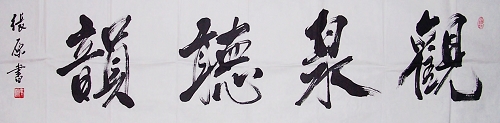 觀泉聽韻
張原書